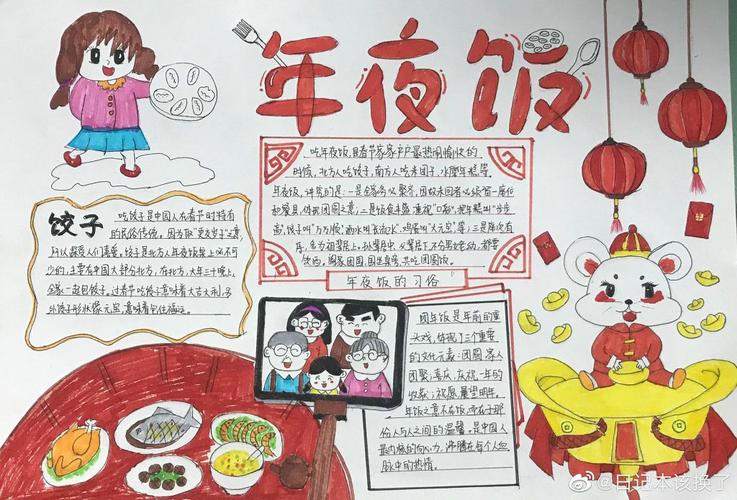 年夜饭
吃年夜饭,是春节家家户户最热闹愉快的
时候,北方人吃饺子,南方人吃末团子、水磨年糕等,
年夜饭,讲究的是:一是全家务必聚齐,因故未回者必须留一座位
和餐具,体现团圆之意;二是饭食丰盛,重视“口彩”,把年糕叫“步步
高”,饺子叫“万万顺”,酒水叫“长流水”,鸡蛋叫“大元宝”等;三是座次有
序,多为祖辈居上,孙辈居中,父辈居下,不分男女老幼,都要
饮酒。阖家团圆,围坐桌旁,共吃团圆饭。
年夜饭的习俗
饺子
吃饺子是中国人在春节时特有
的民俗传统。因为取“更岁交子”之意,
所以深受人们喜爱。饺子是北方人年夜饭桌上必不可
少的,主要在中国大部分北方,在北方,大年三十晚上,
全家一起包饺子。过春节吃饺子意味着大吉大利,另
外饺子形状像元宝,意味着包住福运。
团年饭是年前的重
头戏,体现了三个重要
的文化元素:团圆,家人
团聚;喜庆,庆祝一年的
收获;祝愿,展望明年。
年饭之意不在饭,而在于那
份人与人之间的温馨。是中国人
最内核的向心力,沸腾在每个人血
脉中的热情。
@日记本该换了